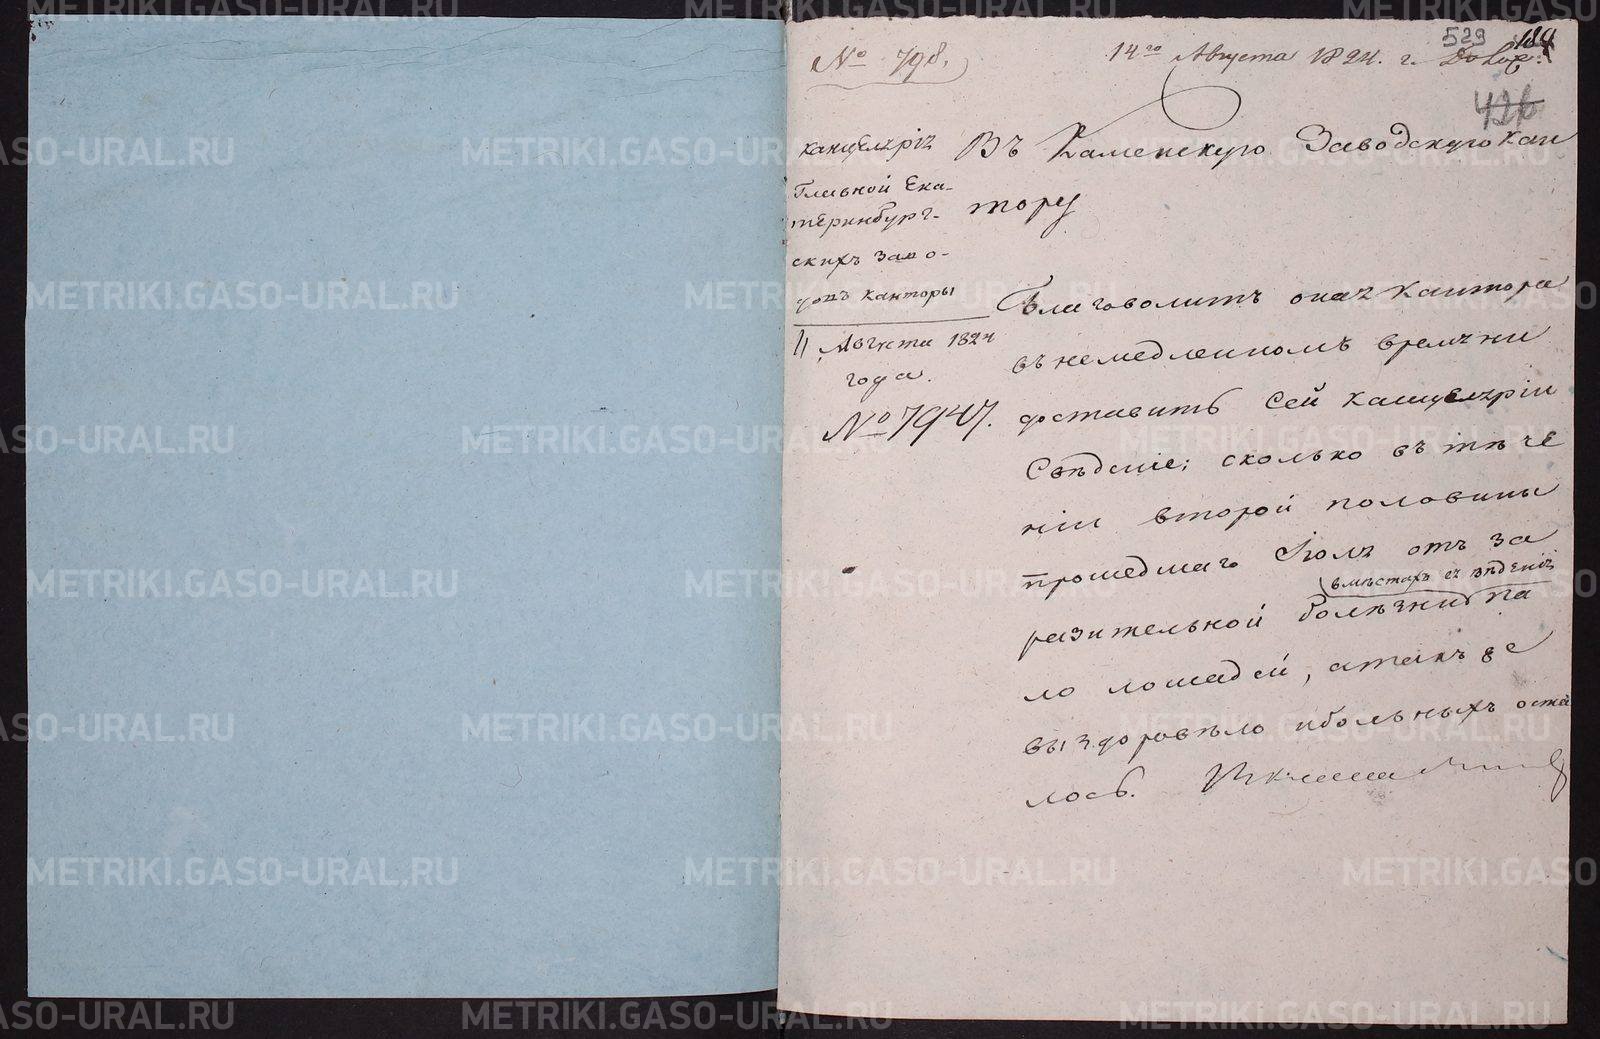 529
184
№ 798.
14го Августа 1824. г.
426
Канцелярія
Главной Ека-
теринбург-
скихъ заво-
довъ Канторы
11 Августа 1824
года.
№ 7947.
Въ Каменскую Заводскую Кан
тору
Благоволитъ оная Кантора
въ немедленномъ времяни
доставить Сей Канцеляріи
Свѣденіе; сколько въ тѣче
ніи второй половины
прошедшаго Іюля отъ за
вмѣстахъ ея вѣденія
разительной болѣзни па
ло лошадей, атакъ же
выздоровѣло ибольныхъ оста
лось.
METRIKI.GASO-URAL.RU